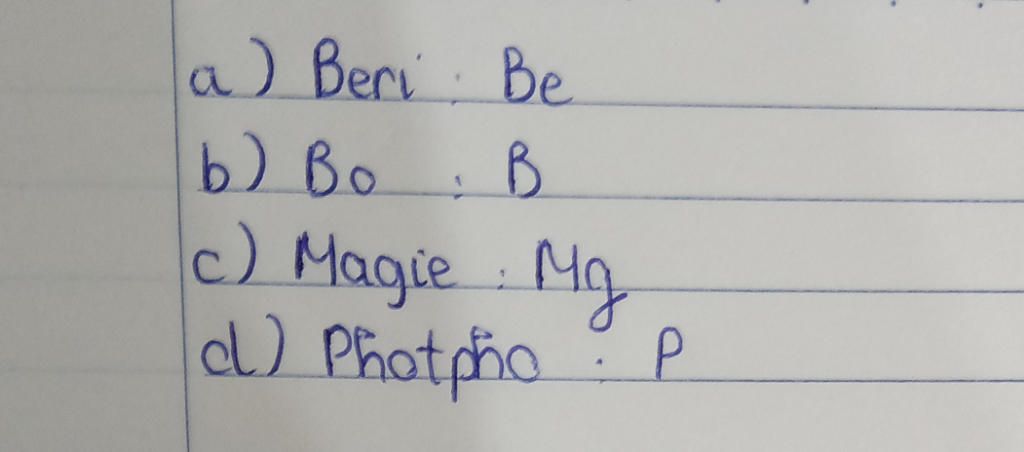 a) Beri : Be
b) Bo : B
c) Magie : Mg
d) Photpho : P